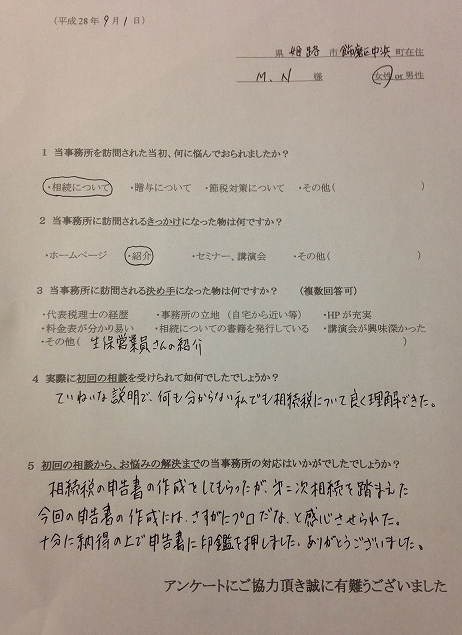 (平成28年9月1日)
県 姫路 市 飾磨区中浜 町在住
M.N 様 女性 or 男性
1 当事務所を訪問された当初、何に悩んでおられましたか?
・相続について ・贈与について ・節税対策について ・その他( )
2 当事務所に訪問されるきっかけになった物は何ですか?
・ホームページ ・紹介 ・セミナー、講演会 ・その他( )
3 当事務所に訪問される決め手になった物は何ですか? (複数回答可)
・代表税理士の経歴 ・事務所の立地(自宅から近い等) ・HPが充実
・料金表が分かり易い ・相続についての書籍を発行している ・講演会が興味深かった
・その他( 生保営業員さんの紹介 )
4 実際に初回の相談を受けられて如何でしたでしょうか?
ていねいな説明で、何も分からない私でも相続税について良く理解できた。
5 初回の相談から、お悩みの解決までの当事務所の対応はいかがでしたでしょうか?
相続税の申告書の作成をしてもらったが、第二次相続を踏まえた
今回の申告書の作成には、さすがにプロだな、と感じさせられた。
十分に納得の上で申告書に印鑑を押しました。ありがとうございました。
アンケートにご協力頂き誠に有難うございました